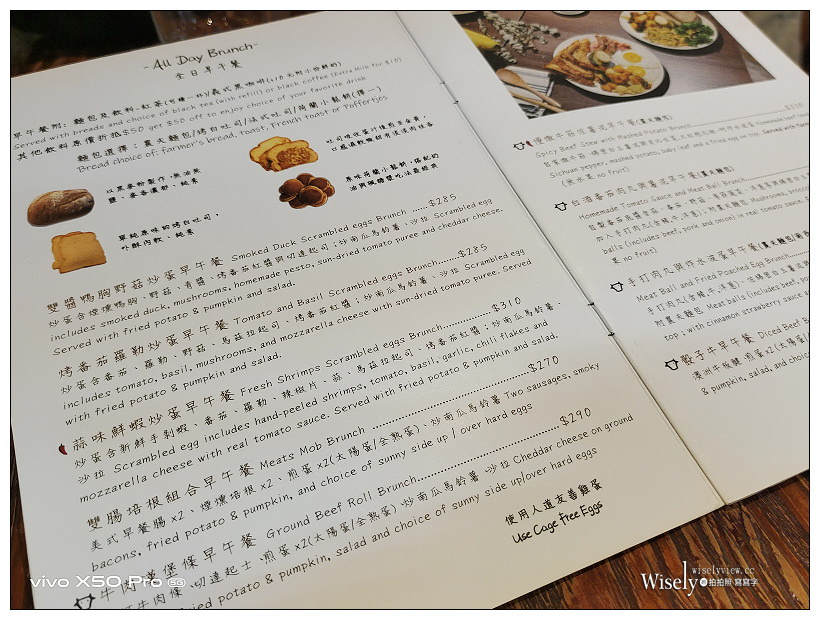 -All Day Brunch-
全日早午餐
早午餐附：麵包及飲料-紅茶(可續一杯)/義式黑咖啡(+10元附小份鮮奶)
Served with breads and choice of black tea (with refill) or black coffee (Extra Milk for $10)
其他飲料原價折抵$50 get $50 off to enjoy choice of your favorite drink
麵包選擇：農夫麵包/烤白吐司/法式吐司/荷蘭小鬆餅(擇一)
Bread choice of: farmer's bread, toast, French toast or Poffertjes
以黑麥粉製作，無油無
糖、麥香濃郁、純素
單純原味的烤白吐司，
外酥內軟、純素
雙醬鴨胸野菇炒蛋早午餐 Smoked Duck Scrambled eggs Brunch ......$285
炒蛋含煙燻鴨胸、野菇、青醬、烤番茄紅醬與切達起司；炒南瓜馬鈴薯、沙拉 Scrambled egg
includes smoked duck, mushrooms, homemade pesto, sun-dried tomato puree and cheddar cheese.
Served with fried potato & pumpkin and salad.
烤番茄羅勒炒蛋早午餐 Tomato and Basil Scrambled eggs Brunch......$285
炒蛋含番茄、羅勒、野菇、馬茲拉起司、烤番茄紅醬；炒南瓜馬鈴薯、沙拉 Scrambled egg
includes tomato, basil, mushrooms, and mozzarella cheese with sun-dried tomato puree. Served
with fried potato & pumpkin and salad.
蒜味鮮蝦炒蛋早午餐 Fresh Shrimps Scrambled eggs Brunch............$310
炒蛋含新鮮手剝蝦、番茄、羅勒、辣椒片、蒜、馬茲拉起司、烤番茄紅醬；炒南瓜馬鈴薯、
沙拉 Scrambled egg includes hand-peeled shrimps, tomato, basil, garlic, chili flakes and
mozzarella cheese with real tomato sauce. Served with fried potato & pumpkin and salad.
雙腸培根組合早午餐 Meats Mob Brunch ......$270
美式早餐腸 x2、煙燻培根 x2、煎蛋 x2(太陽蛋/全熟蛋)、炒南瓜馬鈴薯 Two sausages, smoky
bacons, fried potato & pumpkin, and choice of sunny side up / over hard eggs
牛肉漢堡條早午餐 Ground Beef Roll Brunch......$290
牛肉條、切達起士、煎蛋 x2(太陽蛋/全熟蛋)、炒南瓜馬鈴薯、沙拉 Cheddar cheese on ground
fried potato & pumpkin, salad and choice of sunny side up/over hard eggs
使用人道友善雞蛋
Use Cage Free Eggs
慢燉牛筋佐薯泥早午餐(農夫麵包)
Spicy Beef Stew with Mashed Potato Brunch
Sichuan pepper, mashed potato, baby leaf and a fried egg on top. Served with
(無水果 no fruit)
白酒番茄肉丸與薯泥早午餐(農夫麵包)
Homemade Tomato Sauce and Meat Ball Brunch
balls (includes beef, pork and onion) in real tomato sauce.
果 no fruit)
手打肉丸與炸水波蛋早午餐(農夫麵包
Meat Ball and Fried Poached Egg Brunch
附農夫麵包 Meat balls (includes beef,
top; with cinnamon strawberry sauce
骰子牛早午餐 Diced Beef
澳洲牛板腱、煎蛋 x2(太陽蛋/
& pumpkin, salad, and choice
vivo X50 Pro 5G
Wisely
wiselyview.cc
拍拍照 寫寫字